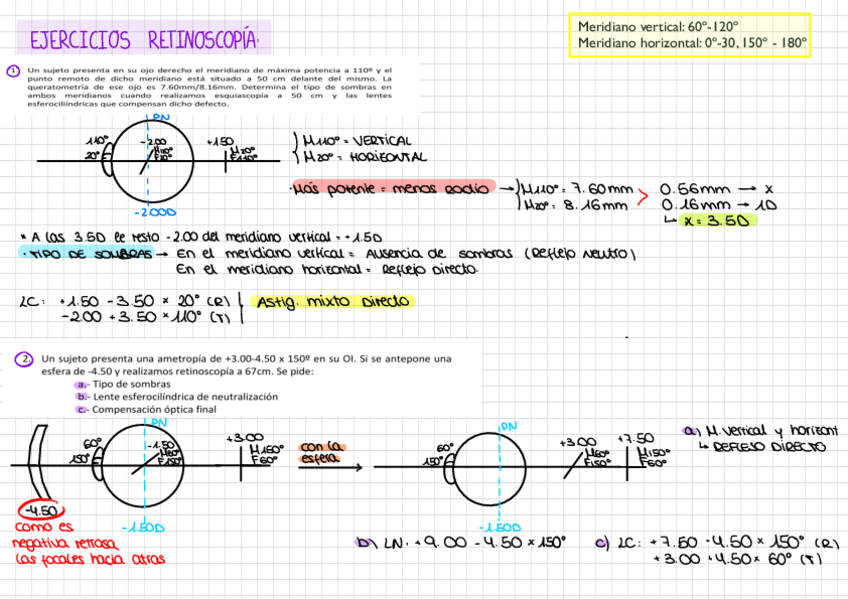 EJERCICIOS RETINOSCOPÍA.
Meridiano vertical: 60º-120º
Meridiano horizontal: 0º-30, 150º - 180º
1 Un sujeto presenta en su ojo derecho el meridiano de máxima potencia a 110º y el
punto remoto de dicho meridiano está situado a 50 cm delante del mismo. La
queratometría de ese ojo es 7.60mm/8.16mm. Determina el tipo de sombras en
ambos meridianos cuando realizamos esquiascopía a 50 cm y las lentes
esferocilíndricas que compensan dicho defecto.
PN
110º
20º
-2.00
M110º
F20º
+1.50
M20º
F110º
-2.00D
M110º = VERTICAL
M20º = HORIZONTAL
·Más potente = menos radio → M110º = 7.60mm > 0.56mm → x
M20º = 8.16mm 0.16mm → 1D
↳ x = 3.5D
* A las 3.5D le resto -2.00 del meridiano vertical = +1.50
·TIPO DE SOMBRAS → En el meridiano vertical = Ausencia de sombras (Reflejo Neutro)
En el meridiano horizontal = Reflejo directo.
LC: +1.50 -3.50 x 20º (R) Astig. mixto Directo
-2.00 +3.50 x 110º (T)
2. Un sujeto presenta una ametropía de +3.00-4.50 x 150º en su OI. Si se antepone una
esfera de -4.50 y realizamos retinoscopía a 67cm. Se pide:
a.- Tipo de sombras
b.- Lente esferocilíndrica de neutralización
c.- Compensación óptica final
PN
60º
150º
-1.50
M60º
F150º
+3.00
M150º
F60º
-1.50D
-4.50
como es
negativa retrasa
las focales hacia atras
con la
esfera
PN
60º
150º
+3.00
M60º
F150º
+7.50
M150º
F60º
-1.50D
a) M. vertical y horizont
↳ REFLEJO DIRECTO
b) LN: +9.00 -4.50 x 150º
c) LC: +7.50 -4.50 x 150º (R)
+3.00 +4.50 x 60º (T)